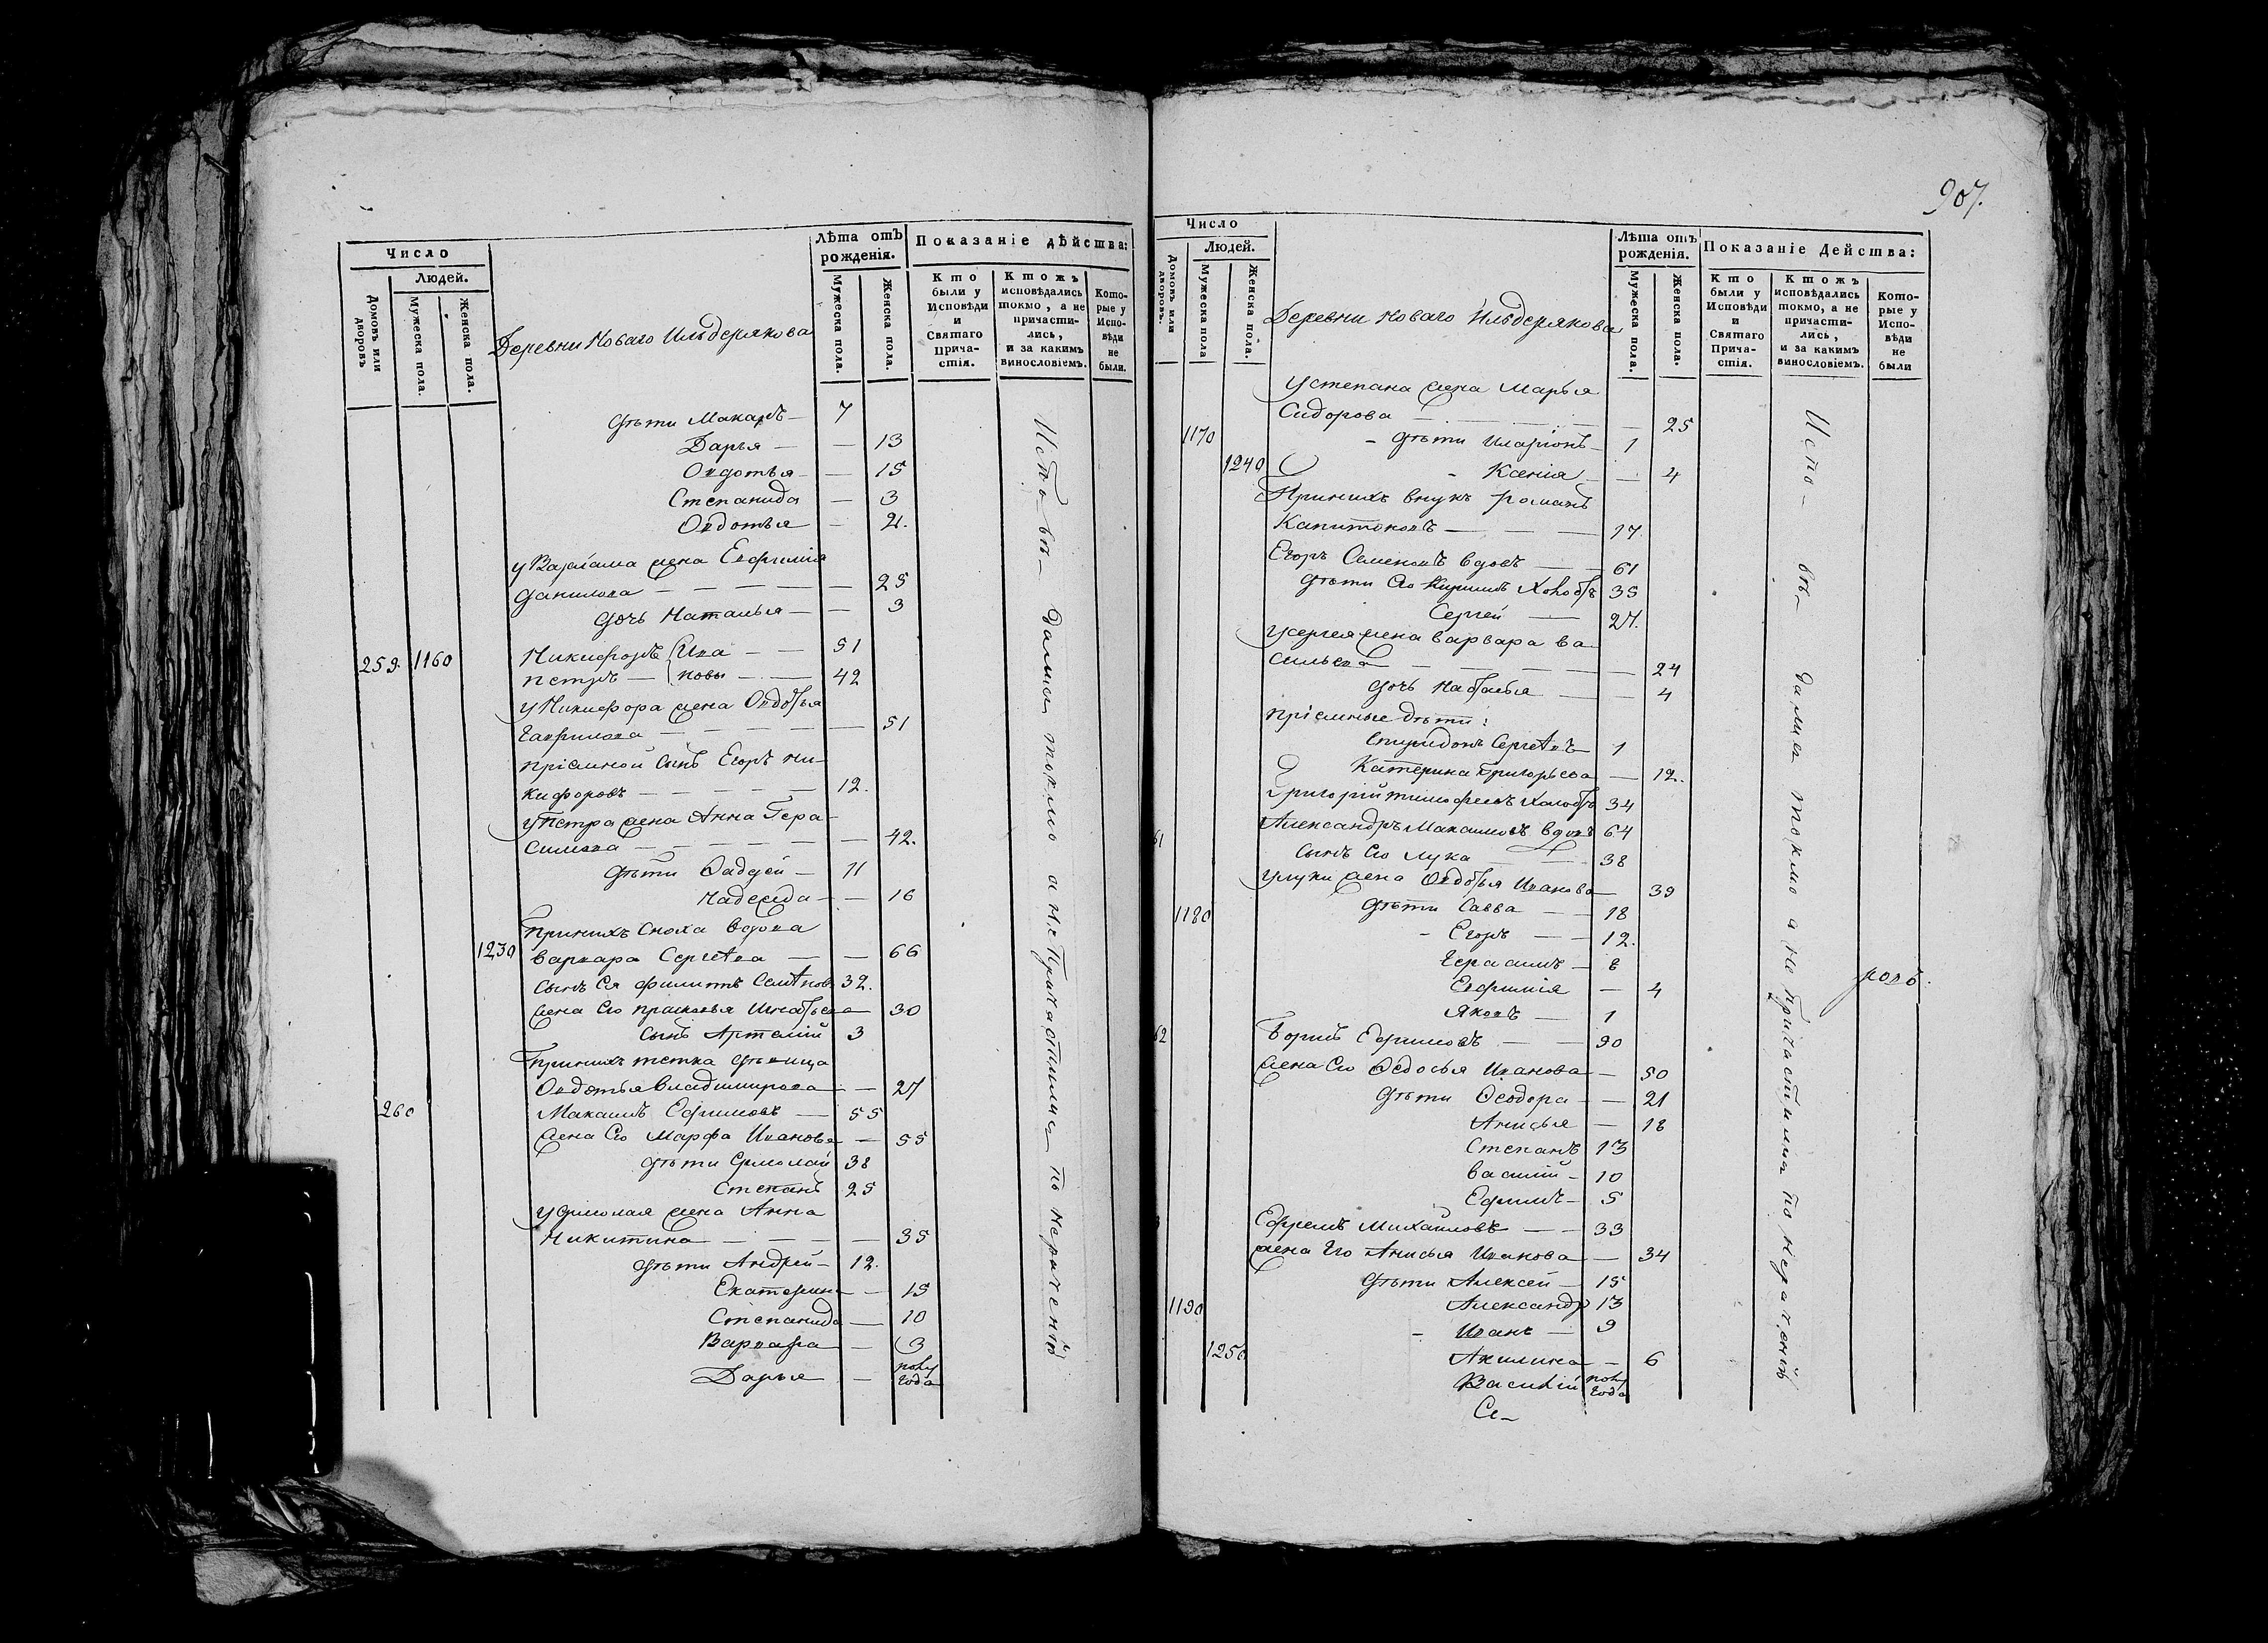 907.
Число
Людей.
Домовъ или дворовъ
Мужеска пола.
Женска пола.
Деревни Новаго Ильдерякова
Лѣта отъ рожденія.
Мужеска пола.
Женска пола.
Показаніе дѣйства:
Кто были у Исповѣди и Святаго Прича-стія.
Ктожъ исповѣдались токмо, а не причасти-лись, и за какимъ винословіемъ.
Кото-рые у Испо-вѣди не были.
дѣти Макаръ — 7
Дарья — — 13
Овдотья — — 15
Степанида — 3
Овдотья — 2.
у Варлама жена Евфимія
Данилова — — — — — 25
дочь Наталья — — 3
259. 1160 Никифоръ Ива — — 51
Петръ — новы — — 42
у Никифора жена Овдотья
Гаврилова — — — — — 51
пріемной сынъ Егоръ Ни-
кифоровъ — — — — — 12.
у Петра жена Анна Гера-
симова — — — — — 42.
дѣти Фадей — 11
Надежда — — 16
При нихъ сноха вдова
1230 Варвара Сергѣева — — 66
сынъ ея Филипъ Семѣновъ 32.
жена его Прасковья Игнатьева 30
сынъ Артемій 3
При нихъ тетка дѣвица
Овдотья Владимирова — — 27
260 Максимъ Ефимовъ — 55
жена его Марфа Иванова — 55
дѣти Ермолай 38
Степанъ 25
у Ермолая жена Анна
Никитина — — — — 35
дѣти Андрей — 12.
Екатерина — 15
Степанида — 10
Варвара — 3
Дарья — полу года
Испо- вѣ- дались токмо а не Причастились по нераченію
Число
Людей.
Домовъ или дворовъ.
Мужеска пола
Женска пола.
Деревни Новаго Ильдерякова
Лѣта отъ рожденія.
Мужеска пола.
Женска пола.
Показаніе Дейсшва:
Кто были у Исповѣди и Святаго Прича-стія.
Ктожъ исповѣдались токмо, а не причасти-лись, и за какимъ винословіемъ.
Кото-рые у Испо-вѣди не были
у Степана жена Марья
Сидорова — — — — — 25
1170 - дѣти Иларіонъ — 1
1240 - Ксенія — — 4
При нихъ внукъ Романъ
Капитоновъ — — — 17.
Егоръ Семеновъ вдовъ — — 61
дѣти его Кирилъ холостъ 35
Сергей — 27.
у Сергея жена Варвара Ва
сильева — — — — — 24
дочь Наталья — — 4
пріемные дѣти:
Спиридонъ Сергѣевъ 1
Катерина Григорьева — 12.
Григорій Тимофеевъ холостъ 34
61 Александръ Максимовъ вдовъ 64
сынъ его Лука — — 38
у Луки жена Овдотья Иванова — 39
1180 дѣти Савва — — 18
- Егоръ — — 12.
Герасимъ — 8
Евфимія — 4
Яковъ — 1
ровъ.
62 Борисъ Ефимовъ — — 90
жена его Федосья Иванова — 50
дѣти Феодора — — 21
Анисья — 18
Степанъ 13
Василій — 10
Ефимъ — 5
3 Ефремъ Михайловъ — — 33
жена его Анисья Иванова — 34
дѣти Алексей — 15
1190 Александръ 13
- Иванъ — 9
1250 Акилина — 6
Василій полу года
Се-
Испо- вѣ- дались токмо а не Причастились по нераченію